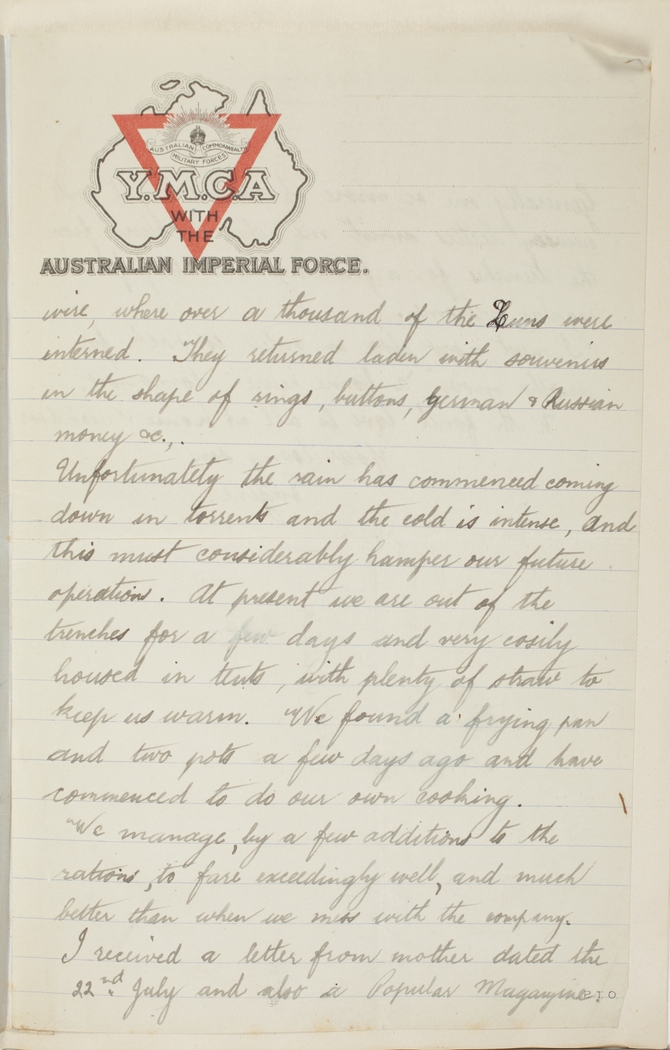 AUSTRALIAN COMMONWEALTH
MILITARY FORCES
Y.M.C.A
WITH
THE
AUSTRALIAN IMPERIAL FORCE.
wire, where over a thousand of the Huns were
interned. They returned laden with souvenirs
in the shape of rings, buttons, German & Russian
money &c.,.
Unfortunately the rain has commenced coming
down in torrents and the cold is intense, and
this must considerably hamper our future
operation. At present we are out of the
trenches for a few days and very cosily
housed in tents, with plenty of straw to
keep us warm. We found a frying pan
and two pots a few days ago and have
commenced to do our own cooking.
We manage, by a few additions to the
rations, to fare exceedingly well, and much
better than when we mess with the company.
I received a letter from mother dated the
22nd July and also a Popular Magazine.
P T O